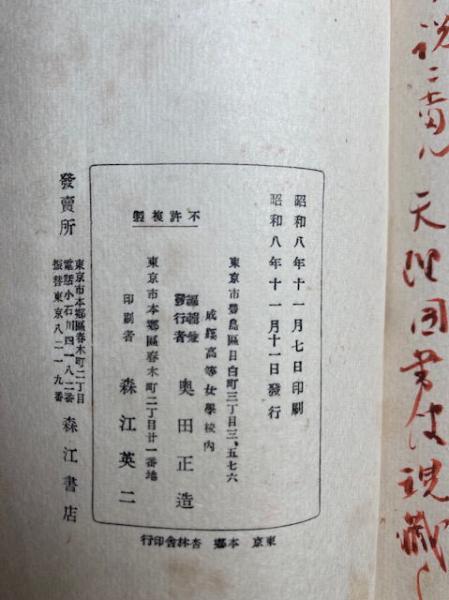 昭和八年十一月七日印刷
昭和八年十一月十一日發行
不許複製
東京市豐島區目白町三丁目三、五七六
成蹊高等女學校內
編輯兼
發行者
奧田正造
東京市本鄕區春木町二丁目廿一番地
印刷者 森江英二
東京 本鄕 杏林舍印行
發賣所
東京市本鄕區春木町二丁目
電話小石川四一八二番
振替東京八二一九番
森江書店